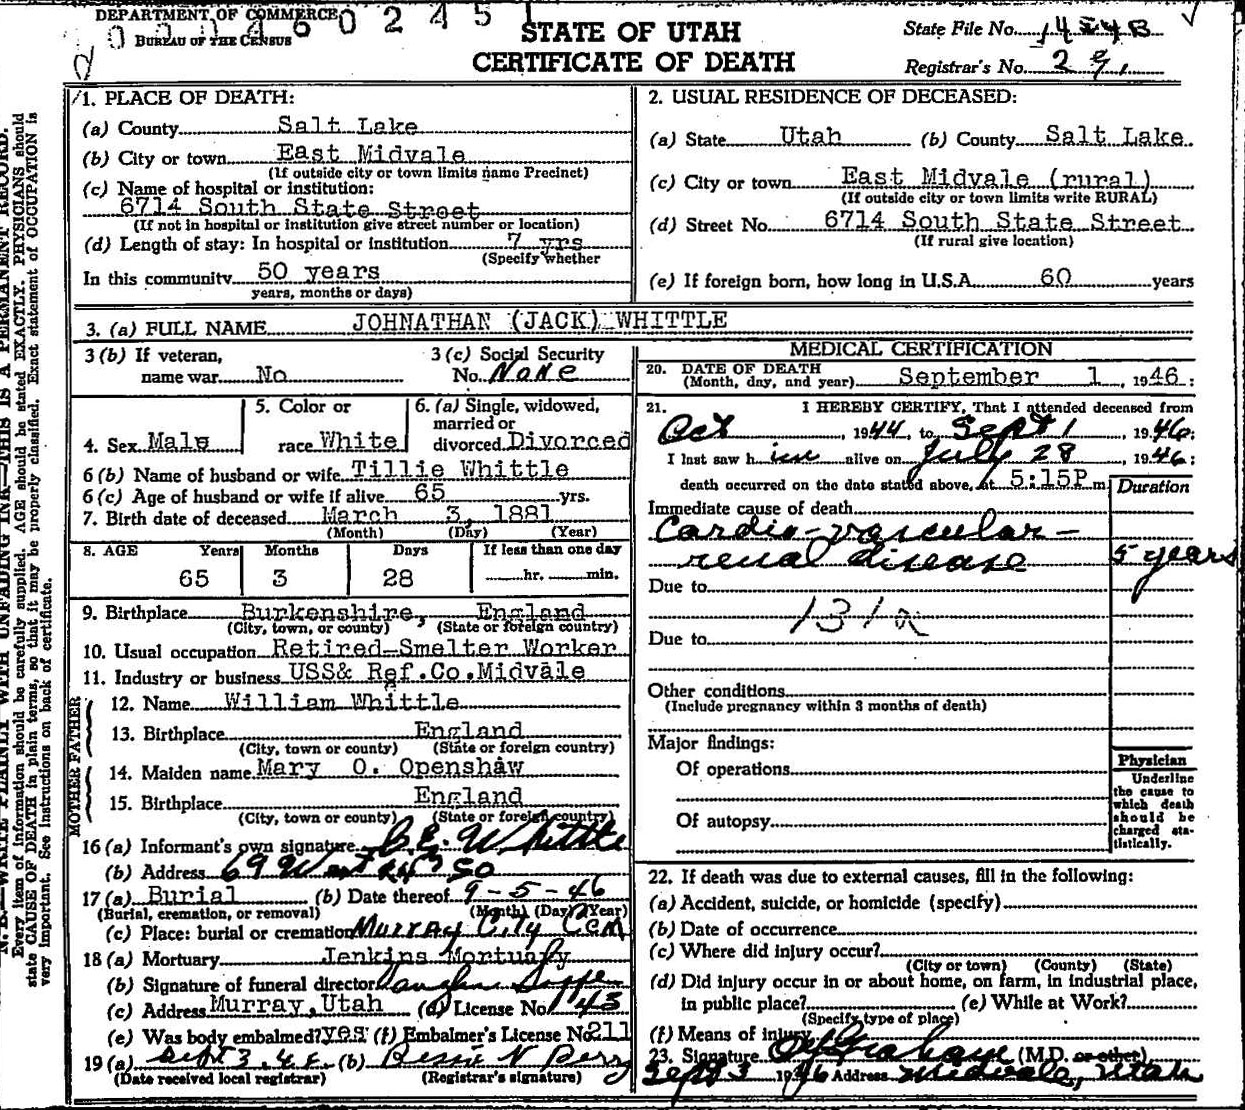 DEPARTMENT OF COMMERCE
BUREAU OF THE CENSUS
STATE OF UTAH
CERTIFICATE OF DEATH
State File No.
Registrar's No.
1. PLACE OF DEATH:
(a) County Salt Lake
(b) City or town East Midvale
(If outside city or town limits name Precinct)
(c) Name of hospital or institution:
6714 South State Street
(If not in hospital or institution give street number or location)
(d) Length of stay: In hospital or institution 7 yrs
(Specify whether
In this community 50 years
years, months or days)
2. USUAL RESIDENCE OF DECEASED:
(a) State Utah (b) County Salt Lake
(c) City or town East Midvale (rural)
(If outside city or town limits write RURAL)
(d) Street No. 6714 South State Street
(If rural give location)
(e) If foreign born, how long in U.S.A. 60 years
3. (a) FULL NAME JOHNATHAN (JACK) WHITTLE
3 (b) If veteran,
name war No
3 (c) Social Security
No. None
4. Sex Male
5. Color or
race White
6. (a) Single, widowed,
married or
divorced Divorced
6 (b) Name of husband or wife Tillie Whittle
6 (c) Age of husband or wife if alive 65 yrs.
7. Birth date of deceased March 3, 1881
(Month) (Day) (Year)
8. AGE Years Months Days If less than one day
65 3 28 hr. min.
9. Birthplace Burkenshire, England
(City, town, or county) (State or foreign country)
10. Usual occupation Retired-Smelter Worker
11. Industry or business USS& Ref.Co.Midvale
FATHER
12. Name William Whittle
13. Birthplace England
(City, town or county) (State or foreign country)
MOTHER
14. Maiden name Mary O. Openshaw
15. Birthplace England
(City, town or county) (State or foreign country)
16 (a) Informant's own signature C.E. Whittle
(b) Address 69 West
17 (a) Burial (b) Date thereof 9-5-46
(Burial, cremation, or removal) (Month) (Day) (Year)
(c) Place: burial or cremation Murray City Cem
18 (a) Mortuary Jenkins Mortuary
(b) Signature of funeral director
(c) Address Murray, Utah (d) License No. 143
(e) Was body embalmed? yes (f) Embalmer's License No. 211
19 (a) Sept 3 (b) Bessie N Berry
(Date received local registrar) (Registrar's signature)
MEDICAL CERTIFICATION
20. DATE OF DEATH
(Month, day, and year) September 1, 1946;
21. I HEREBY CERTIFY, That I attended deceased from
Oct, 1944, to Sept 1, 1946;
I last saw him alive on July 28, 1946;
death occurred on the date stated above, at 5:15P m
Duration
Immediate cause of death
Cardio-vascular-
renal disease 5 years
Due to
131a
Due to
Other conditions
(Include pregnancy within 3 months of death)
Major findings:
Of operations
Of autopsy
Physician
Underline
the cause to
which death
should be
charged sta-
tistically.
22. If death was due to external causes, fill in the following:
(a) Accident, suicide, or homicide (specify)
(b) Date of occurrence
(c) Where did injury occur?
(City or town) (County) (State)
(d) Did injury occur in or about home, on farm, in industrial place,
in public place? (e) While at Work?
(Specify type of place)
(f) Means of injury
23. Signature Graham (M.D. or other)
Sept 3 1946 Address Midvale, Utah
N. B.—WRITE PLAINLY WITH UNFADING INK—THIS IS A PERMANENT RECORD.
Every item of information should be carefully supplied. AGE should be stated EXACTLY. PHYSICIANS should
state CAUSE OF DEATH in plain terms, so that it may be properly classified. Exact statement of OCCUPATION is
very important. See instructions on back of certificate.